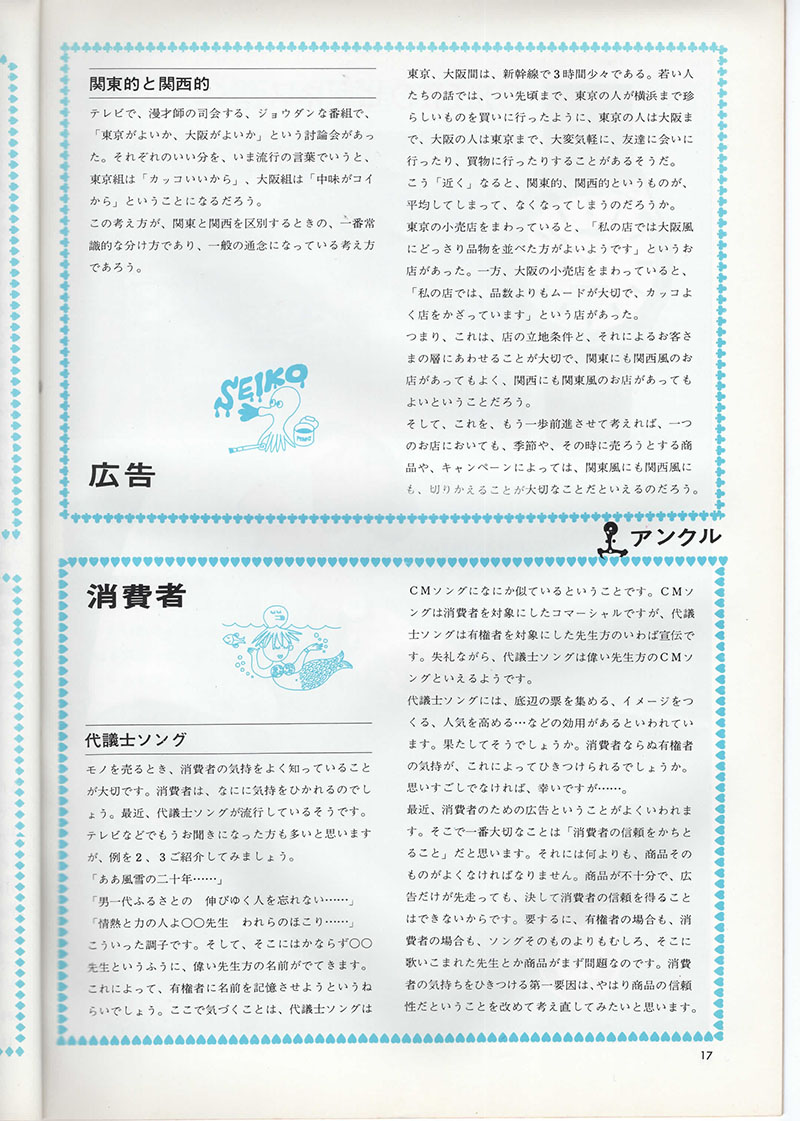 関東的と関西的
テレビで、漫才師の司会する、ジョウダンな番組で、
「東京がよいか、大阪がよいか」という討論会があっ
た。それぞれのいい分を、いま流行の言葉でいうと、
東京組は「カッコいいから」、大阪組は「中味がコイ
から」ということになるだろう。
この考え方が、関東と関西を区別するときの、一番常
識的な分け方であり、一般の通念になっている考え方
であろう。
SEIKO
広告
東京、大阪間は、新幹線で3時間少々である。若い人
たちの話では、つい先頃まで、東京の人が横浜まで珍
らしいものを買いに行ったように、東京の人は大阪ま
で、大阪の人は東京まで、大変気軽に、友達に会いに
行ったり、買物に行ったりすることがあるそうだ。
こう「近く」なると、関東的、関西的というものが、
平均してしまって、なくなってしまうのだろうか。
東京の小売店をまわっていると、「私の店では大阪風
にどっさり品物を並べた方がよいようです」というお
店があった。一方、大阪の小売店をまわっていると、
「私の店では、品数よりもムードが大切で、カッコよ
く店をかざっています」という店があった。
つまり、これは、店の立地条件と、それによるお客さ
まの層にあわせることが大切で、関東にも関西風のお
店があってもよく、関西にも関東風のお店があっても
よいということだろう。
そして、これを、もう一歩前進させて考えれば、一つ
のお店においても、季節や、その時に売ろうとする商
品や、キャンペーンによっては、関東風にも関西風に
も、切りかえることが大切なことだといえるのだろう。
アンクル
消費者
代議士ソング
モノを売るとき、消費者の気持をよく知っていること
が大切です。消費者は、なにに気持をひかれるのでし
ょう。最近、代議士ソングが流行しているそうです。
テレビなどでもうお聞きになった方も多いと思います
が、例を2、3ご紹介してみましょう。
「ああ風雪の二十年……」
「男一代ふるさとの 伸びゆく人を忘れない……」
「情熱と力の人よ〇〇先生 われらのほこり……」
こういった調子です。そして、そこにはかならず〇〇
先生というふうに、偉い先生方の名前がでてきます。
これによって、有権者に名前を記憶させようというね
らいでしょう。ここで気づくことは、代議士ソングは
CMソングになにか似ているということです。CMソ
ングは消費者を対象にしたコマーシャルですが、代議
士ソングは有権者を対象にした先生方のいわば宣伝で
す。失礼ながら、代議士ソングは偉い先生方のCMソ
ングといえるようです。
代議士ソングには、底辺の票を集める、イメージをつ
くる、人気を高める…などの効用があるといわれてい
ます。果たしてそうでしょうか。消費者ならぬ有権者
の気持が、これによってひきつけられるでしょうか。
思いすごしでなければ、幸いですが……。
最近、消費者のための広告ということがよくいわれま
す。そこで一番大切なことは「消費者の信頼をかちと
ること」だと思います。それには何よりも、商品その
ものがよくなければなりません。商品が不十分で、広
告だけが先走っても、決して消費者の信頼を得ること
はできないからです。要するに、有権者の場合も、消
費者の場合も、ソングそのものよりもむしろ、そこに
歌いこまれた先生とか商品がまず問題なのです。消費
者の気持ちをひきつける第一要因は、やはり商品の信頼
性だということを改めて考え直してみたいと思います。
17